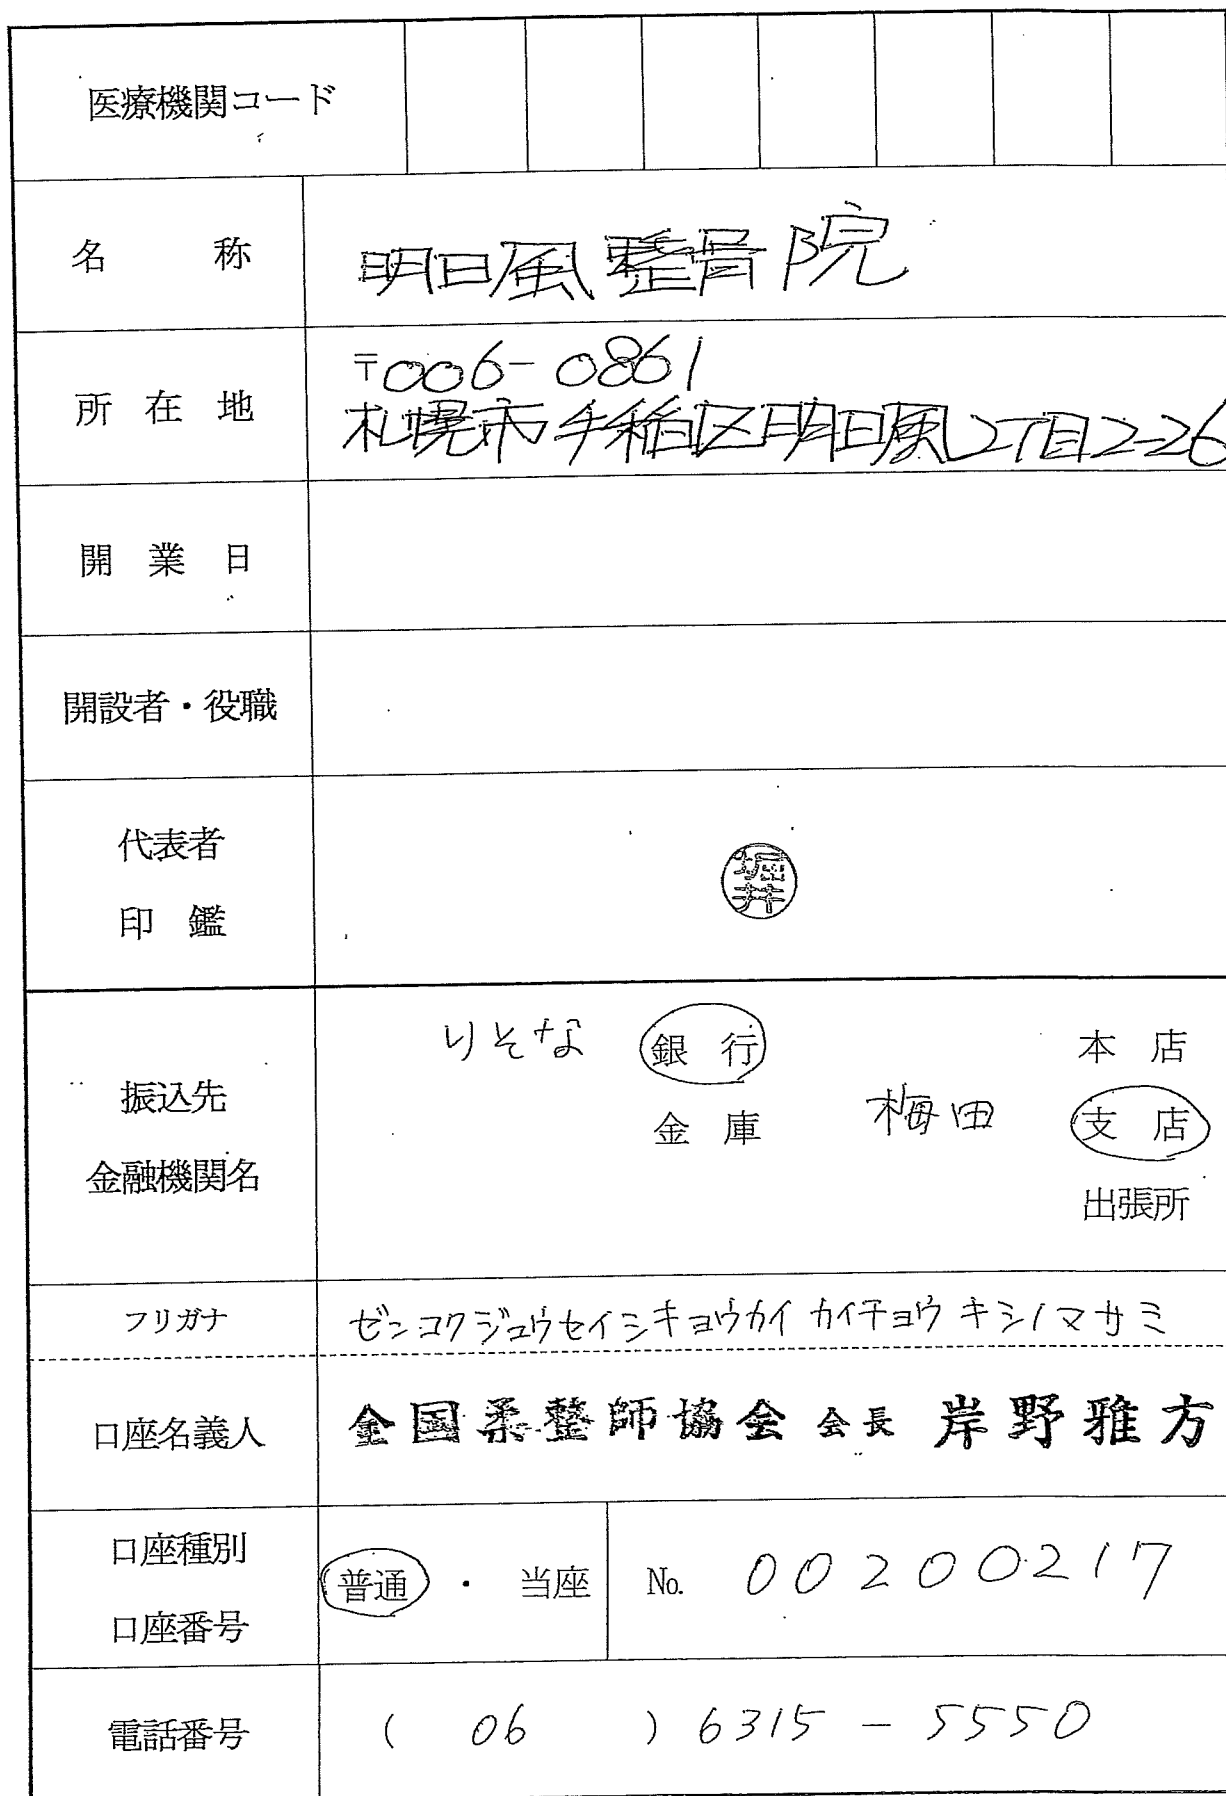 医療機関コード
名 称 明日風整骨院
所 在 地 〒006-0861
札幌市手稲区明日風2丁目2-26
開 業 日
開設者・役職
代表者
印 鑑
堀井
振込先
金融機関名
りそな 銀 行 本 店
金 庫 梅田 支 店
出張所
フリガナ ゼンコクジュウセイシキョウカイ カイチョウ キシノマサミ
口座名義人 全国柔整師協会 会長 岸野雅方
口座種別
口座番号
普通 ・ 当座 No. 00200217
電話番号 ( 06 ) 6315 - 5550